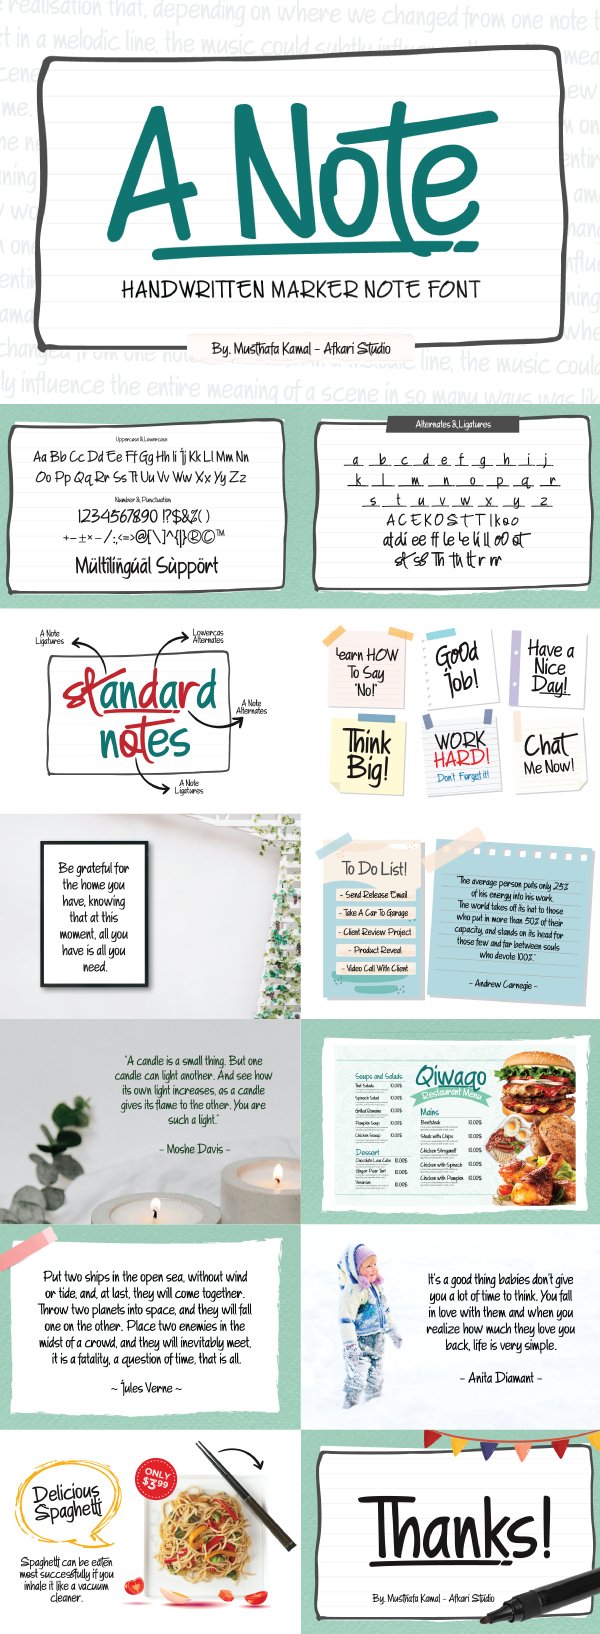 realisation that, depending on where we changed from one note t
t in a melodic line, the music could subtly
A Note
HANDWRITTEN MARKER NOTE FONT
By. Musthafa Kamal - Afkari Studio
changed from one note
melodic line, the music could
ly influence the entire meaning of a scene in so many ways was lik
Uppercase & Lowercase
Aa Bb Cc Dd Ee Ff Gg Hh Ii Jj Kk Ll Mm Nn
Oo Pp Qq Rr Ss Tt Uu Vv Ww Xx Yy Zz
Number & Punctuation
1234567890 !?$&%( )
+-±×-/:,<=>@[\]^{|}®©™
Mültilíñgúãl Süppört
Alternates & Ligatures
a b c d e f g h i j
k l m n o p q r
s t u v w x y z
A C E K O S T T I k o o
A Note
Ligatures
Lowercas
Alternates
standard
notes
A Note
Alternates
A Note
Ligatures
Learn HOW
To Say
"No!"
GoOd
job!
Have a
Nice
Day!
Think
Big!
WORK
HARD!
Don't Forget it!
Chat
Me Now!
Be grateful for
the home you
have, knowing
that at this
moment, all you
have is all you
need.
To Do List!
- Send Release Email
- Take A Car To Garage
- Client Review Project
- Product Reveal
- Video Call With Client
"The average person puts only 25%
of his energy into his work.
The world takes off its hat to those
who put in more than 50% of their
capacity, and stands on its head for
those few and far between souls
who devote 100%."
- Andrew Carnegie -
"A candle is a small thing. But one
candle can light another. And see how
its own light increases, as a candle
gives its flame to the other. You are
such a light."
- Moshe Davis -
Qiwago
Restaurant Menu
Soups and Salads
Thai Salads 10.00$
Spinach Salad 10.00$
Grilled Romaine 10.00$
Pumpkin Soup 10.00$
Chicken Soup 10.00$
Dessert
Chocolate Lava Cake 10.00$
Ginger Pear Tart 10.00$
10.00$
Mains
Beefsteak 10.00$
Steak with Chips 10.00$
Chicken Stroganoff 10.00$
Chicken with Spinach 10.00$
Chicken with Pumpkin 10.00$
Put two ships in the open sea, without wind
or tide, and, at last, they will come together.
Throw two planets into space, and they will fall
one on the other. Place two enemies in the
midst of a crowd, and they will inevitably meet,
it is a fatality, a question of time, that is all.
~ Jules Verne ~
It's a good thing babies don't give
you a lot of time to think. You fall
in love with them and when you
realize how much they love you
back, life is very simple.
- Anita Diamant -
Delicious
Spaghetti
ONLY
$3.99
Spaghetti can be eaten
most successfully if you
inhale it like a vacuum
cleaner.
Thanks!
By. Musthafa Kamal - Afkari Studio